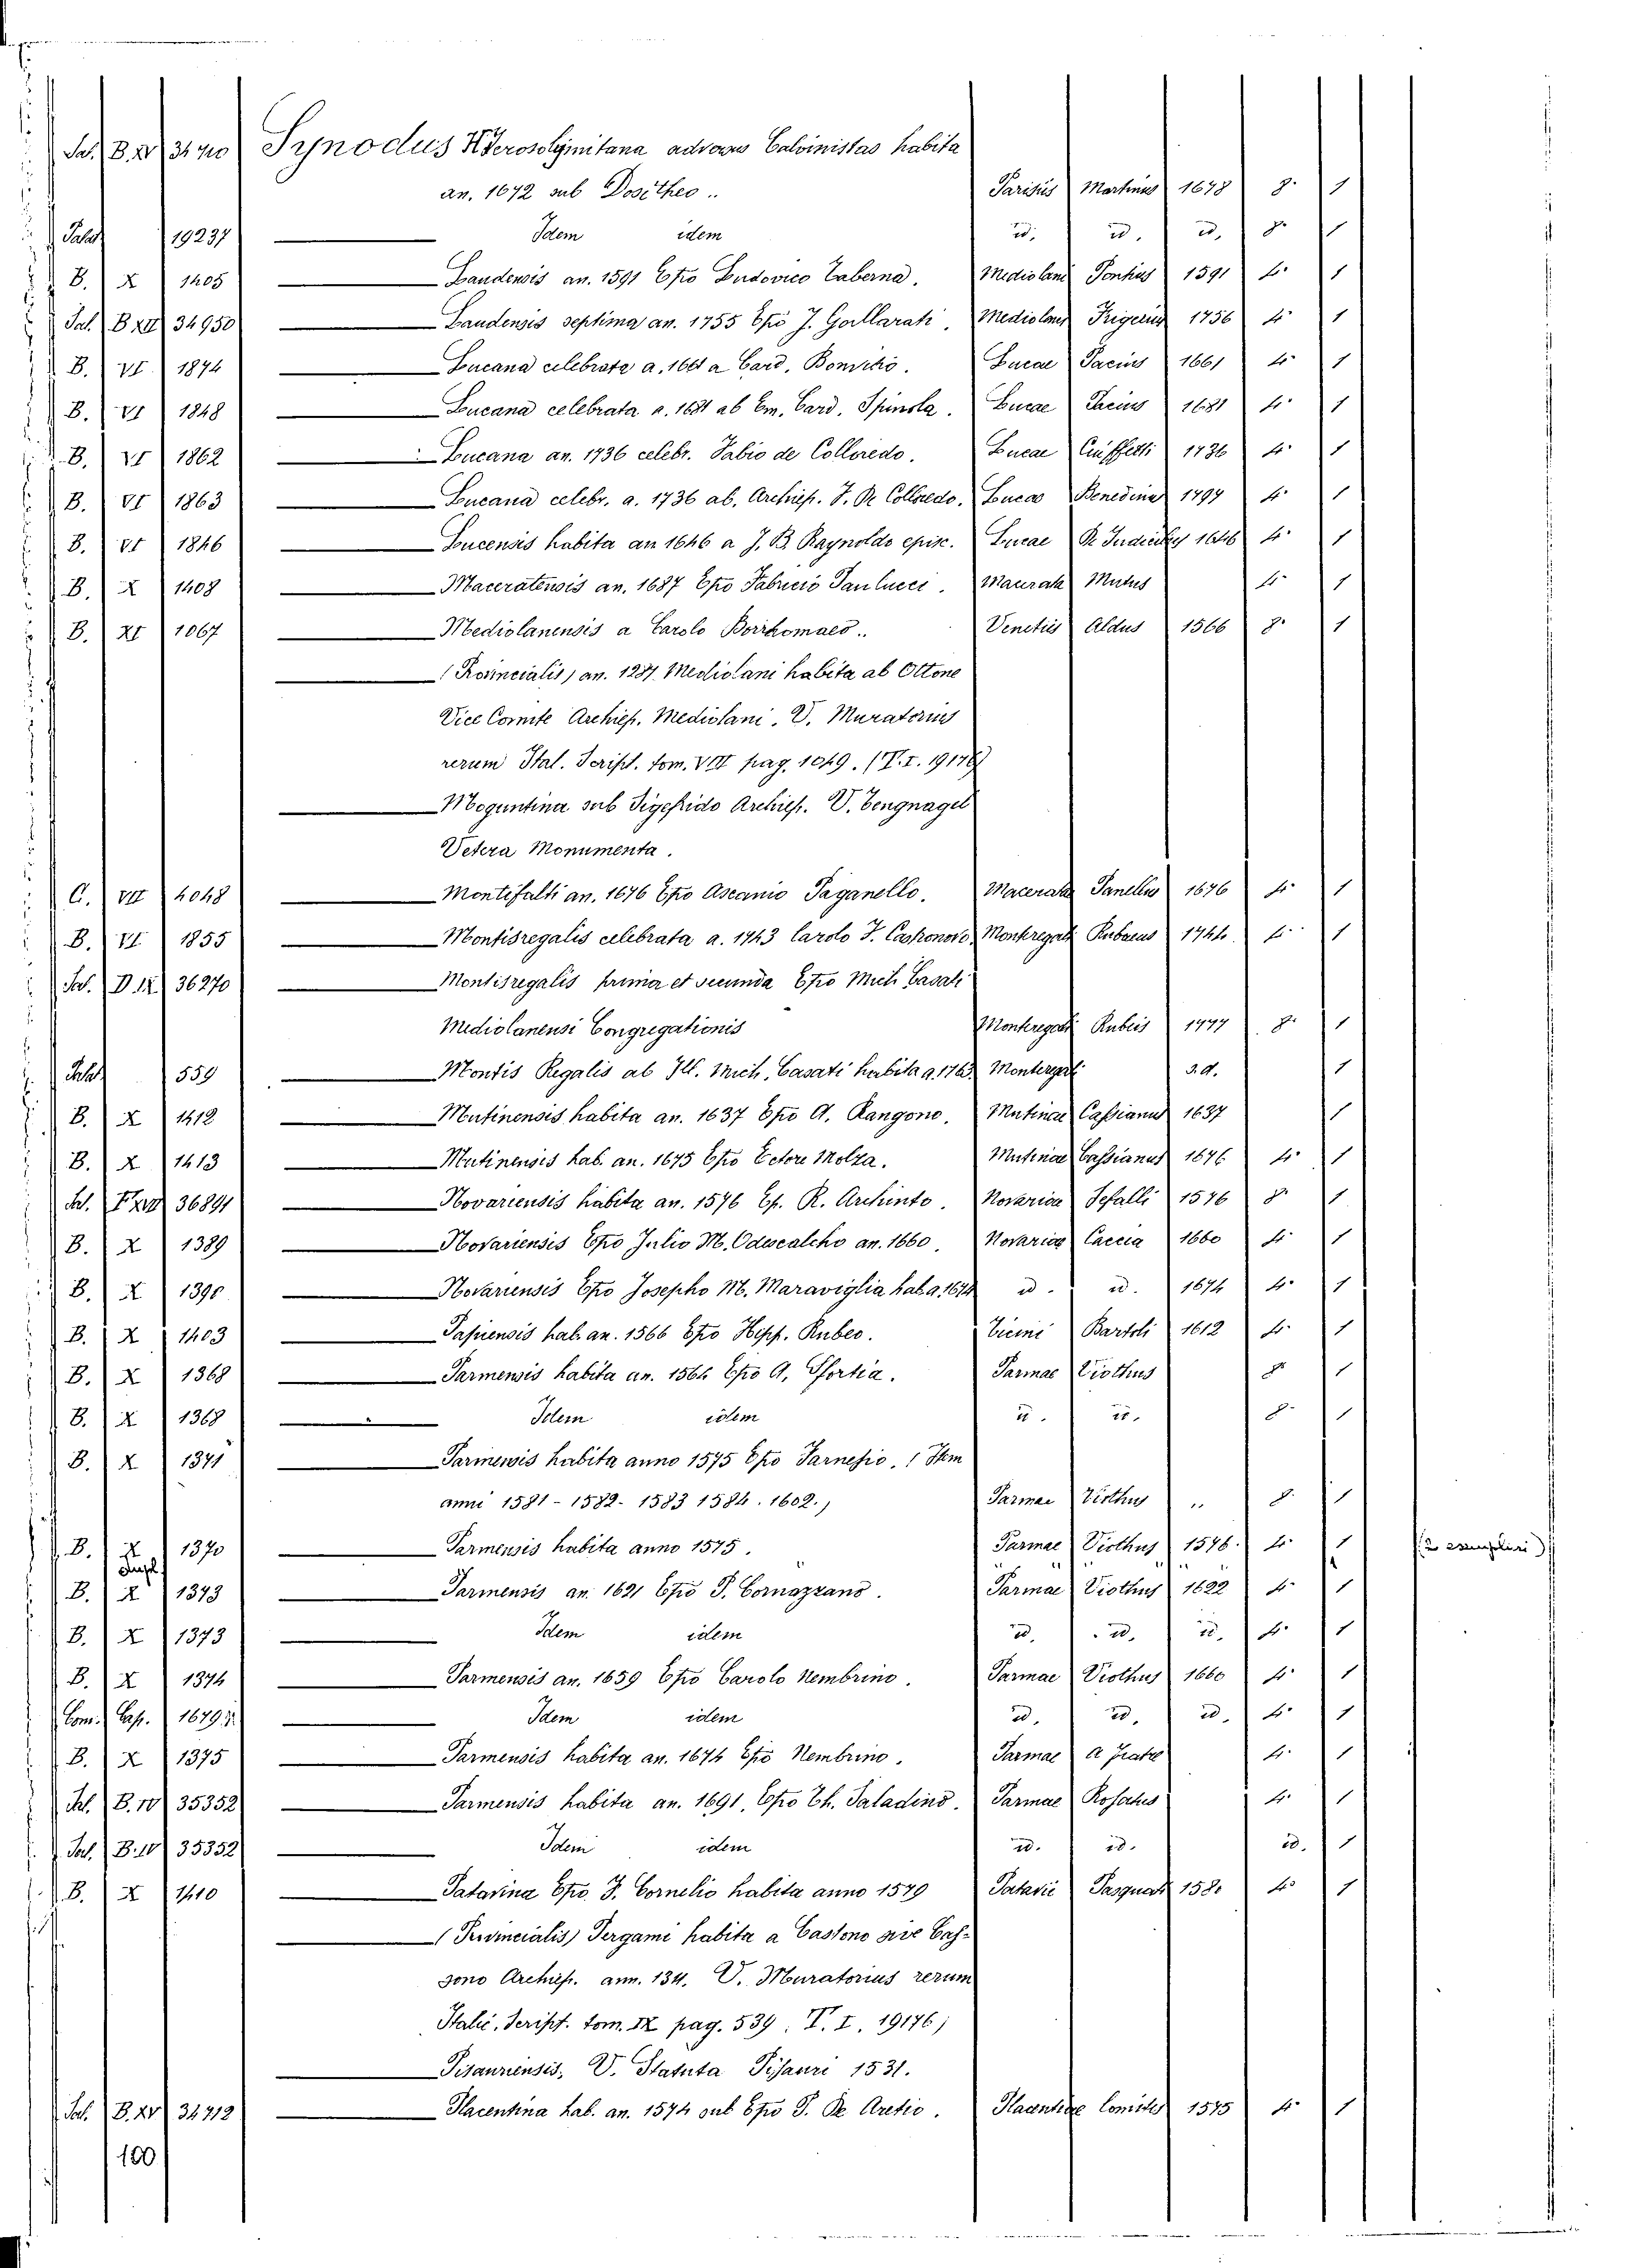 Sal. B.XV 34710 Synodus Hierosolymitana adversus Calvinistas habita
an. 1672 sub Dositheo.. Parisiis Martinus 1678 8° 1
Palat 19237 — Idem idem id. id. id. 8° 1
B. X 1405 — Laudensis an. 1591 Epo Ludovico Taberna. Mediolani Pontius 1591 4° 1
Sal. B XII 34950 — Laudensis septima an. 1755 Epo J. Gallarati. Mediolani Frigerius 1756 4° 1
B. VI 1874 — Lucana celebrata a. 1661 a Card. Bonvisio. Lucae Pacius 1661 4° 1
B. VI 1848 — Lucana celebrata a. 1681 ab Em. Card. Spinola. Lucae Pacius 1681 4° 1
B. VI 1862 — Lucana an. 1736 celebr. Fabio de Colloredo. Lucae Ciuffetti 1736 4° 1
B. VI 1863 — Lucana celebr. a. 1736 ab. Archiep. F. De Colloredo. Lucae Benedini 4° 1
B. VI 1846 — Lucensis habita an 1646 a J. B. Raynoldo episc. Lucae De Iudicibus 1646 4° 1
B. X 1408 — Maceratensis an. 1687 Epo Fabricio Paulucci. Macerat 4° 1
B. XI 1067 — Mediolanensis a Carolo Borrhomaeo.. Venetiis Aldus 1566 8° 1
— (Provincialis) an. 1287. Mediolani habita ab Ottone
Vice Comite Archiep. Mediolani. V. Muratorius
rerum Ital. Script. tom. VIII pag. 1049. (T. I. 19176)
— Moguntina sub Sigefrido Archiep. V. Tengnagel
Vetera Monumenta.
C. VII 4048 — Montifalti an. 1676 Epo Ascanio Paganello. Maceratae Panellus 1676 4° 1
B. VI 1855 — Montisregalis celebrata a. 1743 Carolo F. Monteregali Rubeus 1744 4° 1
Sal. D.IX 36270 — Montisregalis prima et secunda Epo Mich Casati
Mediolanensi Congregationis Monteregali Rubeis 1777 8° 1
Palat 559 — Montis Regalis ab Ill. Mich. Casati habita a. 1763. Monteregali s.d. 1
B. X 1412 — Mutinensis habita an. 1637 Epo A. Rangono. Mutinae Cassianus 1637 1
B. X 1413 — Mutinensis hab. an. 1675 Epo Ectore Molza. Mutinae Cassianus 1676 4° 1
Sal. 36891 — Novariensis habita an. 1576 Ep. R. Archinto. Novariae Sesalli 1576 8° 1
B. X 1389 — Novariensis Epo Julio M. Odescalcho an. 1660. Novariae Caccia 1660 4° 1
B. X 1390 — Novariensis Epo Josepho M. Maraviglia hab. a. 1674 id. id. 1674 4° 1
B. X 1403 — Papiensis hab. an. 1566 Epo Hipp. Rubeo. Ticini Bartoli 1612 4° 1
B. X 1368 — Parmensis habita an. 1564 Epo A. Sfortia. Parmae Viothus 8° 1
B. X 1368 — Idem idem id. id. 8° 1
B. X 1371 — Parmensis habita anno 1575 Epo Farnesio. (Item
anni 1581 - 1582 - 1583 1584. 1602.) Parmae Viothus .. 8° 1
B. X 1370 — Parmensis habita anno 1575. Parmae Viothus 1576. 4° 1 (2 esemplari)
dupl.
B. X 1373 — Parmensis an. 1621 Epo P. Cornazzano. Parmae Viothus 1622 4° 1
B. X 1373 — Idem idem id. id. id. 4° 1
B. X 1374 — Parmensis an. 1659 Epo Carolo Nembrino. Parmae Viothus 1660 4° 1
Com. Cap. 16791 — Idem idem id. id. id. 4° 1
B. X 1375 — Parmensis habita an. 1674 Epo Nembrino. Parmae 4° 1
Sal. B.IV 35352 — Parmensis habita an. 1691. Epo Th. Saladino. Parmae Rosatus 4° 1
Sal. B.IV 35352 — Idem idem id. id. id. 1
B. X 1410 — Patavina Epo. F. Cornelio habita anno 1579 Patavii Pasquati 1580 4° 1
— (Provincialis) Pergami habita a Castono sive Cas-
sono Archiep. ann. 1311. V. Muratorius rerum
Italic. Script. tom. IX pag. 539. T. I. 19176)
— Pisauriensis, V. Statuta Pisauri 1531.
Sal. B.XV 34712 — Placentina hab. an. 1574 sub Epo P. De Aretio. Placentiae Comites 1575 4° 1
100